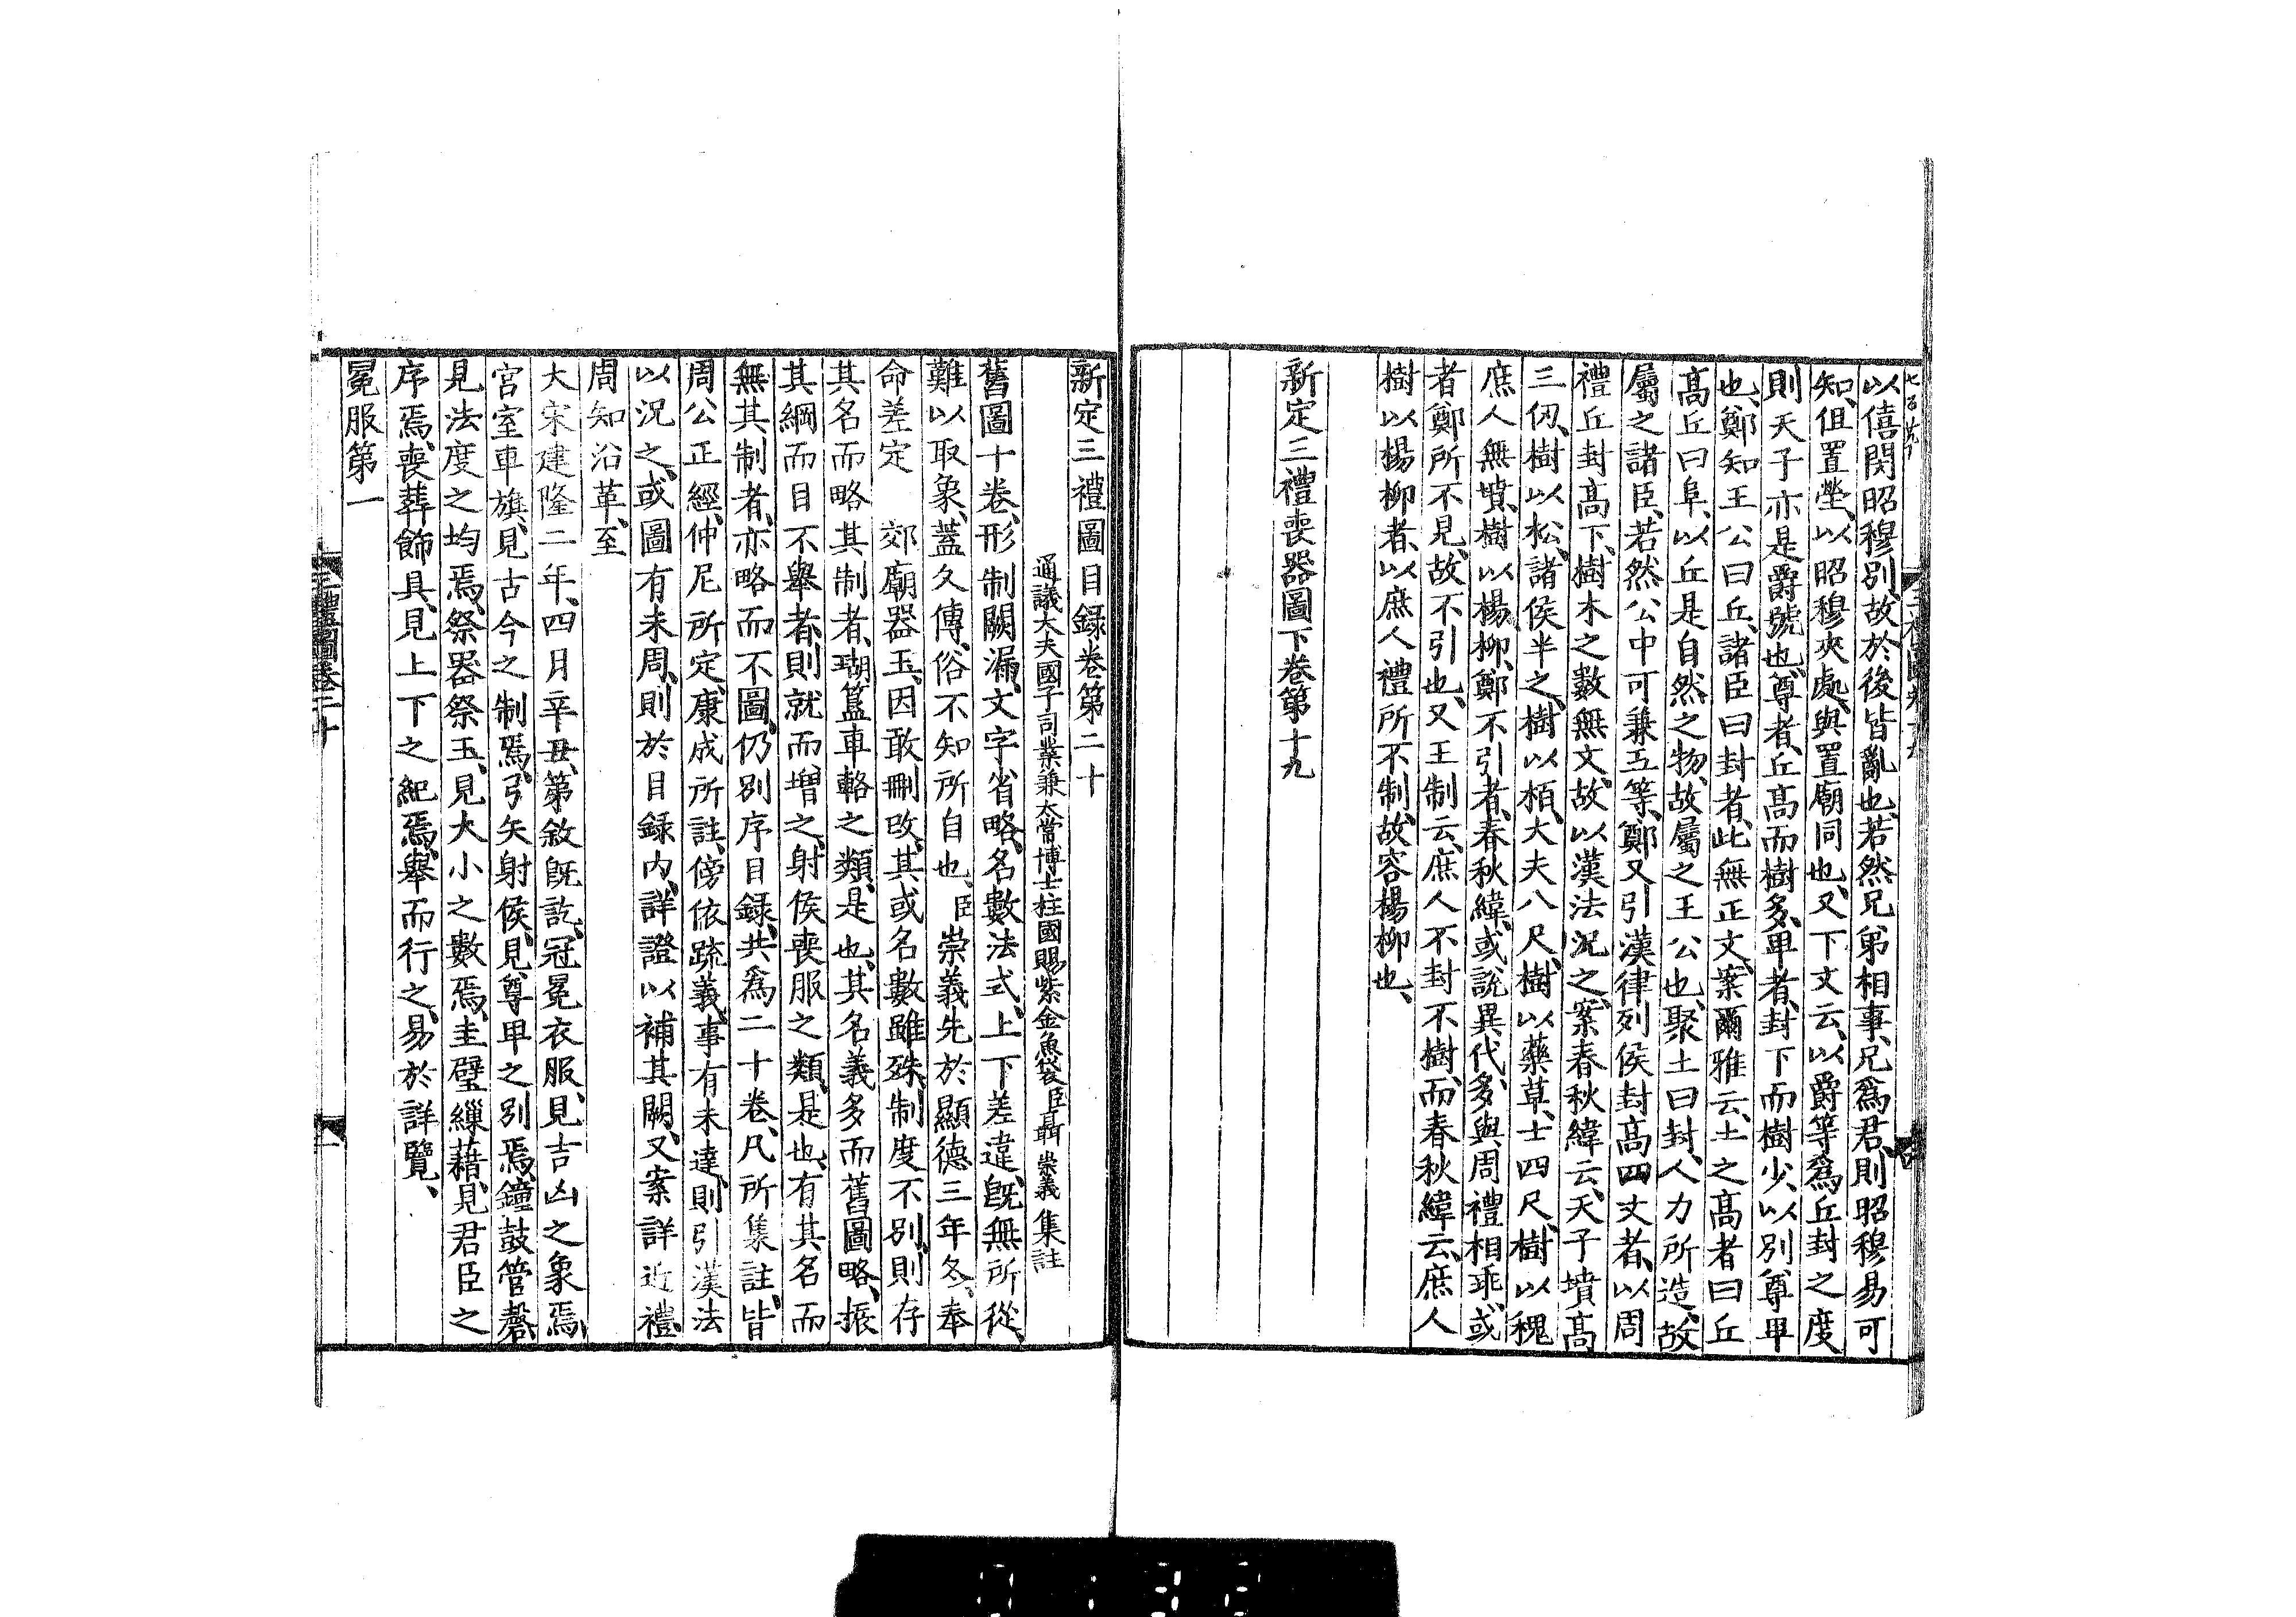 以僖閔昭穆別、故於後皆亂也、若然兄弟相事、兄爲君、則昭穆易可
知、但置塋、以昭穆夾處、與置廟同也、又下文云、以爵等爲丘封之度
則天子亦是爵號也、尊者、丘髙而樹多、卑者、封下而樹少、以別尊卑
也、鄭知王公曰丘、諸臣曰封者、此無正文、案爾雅云、土之髙者曰丘
髙丘曰阜、以丘是自然之物、故屬之王公也、聚土曰封、人力所造、故
屬之諸臣、若然公中可兼五等、鄭又引漢律列侯封髙四丈者、以周
禮丘封髙下、樹木之數無文、故以漢法況之、案春秋緯云、天子墳髙
三仭、樹以松、諸侯半之、樹以栢、大夫八尺、樹以藥草、士四尺、樹以槐
庶人無墳、樹以楊柳、鄭不引者、春秋緯、或說異代、多與周禮相乖、或
者鄭所不見、故不引也、又王制云、庶人不封不樹、而春秋緯云、庶人
樹以楊柳者、以庶人禮所不制、故容楊柳也、
新定三禮喪器圖下卷第十九
新定三禮圖目録卷第二十
通議大夫國子司業兼太常博士柱國賜紫金魚袋臣聶崇義集註
舊圖十卷、形制闕漏、文字省略、名數法式、上下差違、旣無所從、
難以取象、蓋久傳、俗不知所自也、臣崇義先於顯德三年冬、奉
命差定 郊廟器玉、因敢刪改、其或名數雖殊、制度不別、則存
其名而略其制者、瑚簋車輅之類、是也、其名義多而舊圖略、振
其綱而目不舉者、則就而增之、射侯喪服之類、是也、有其名而
無其制者、亦略而不圖、仍別序目録、共爲二十卷、凡所集註、皆
周公正經、仲尼所定、康成所註、傍依疏義、事有未達、則引漢法
以況之、或圖有未周、則於目録内、詳證以補其闕、又案詳近禮、
周知沿革、至
大宋建隆二年、四月辛丑、第敘旣訖、冠冕衣服、見吉凶之象焉、
宮室車旗、見古今之制焉、弓矢射侯、見尊卑之別焉、鐘鼓管磬、
見法度之均焉、祭器祭玉、見大小之數焉、圭璧繅藉、見君臣之
序焉、喪葬飾具、見上下之紀焉、舉而行之、易於詳覽、
冕服第一
三禮圖卷二十